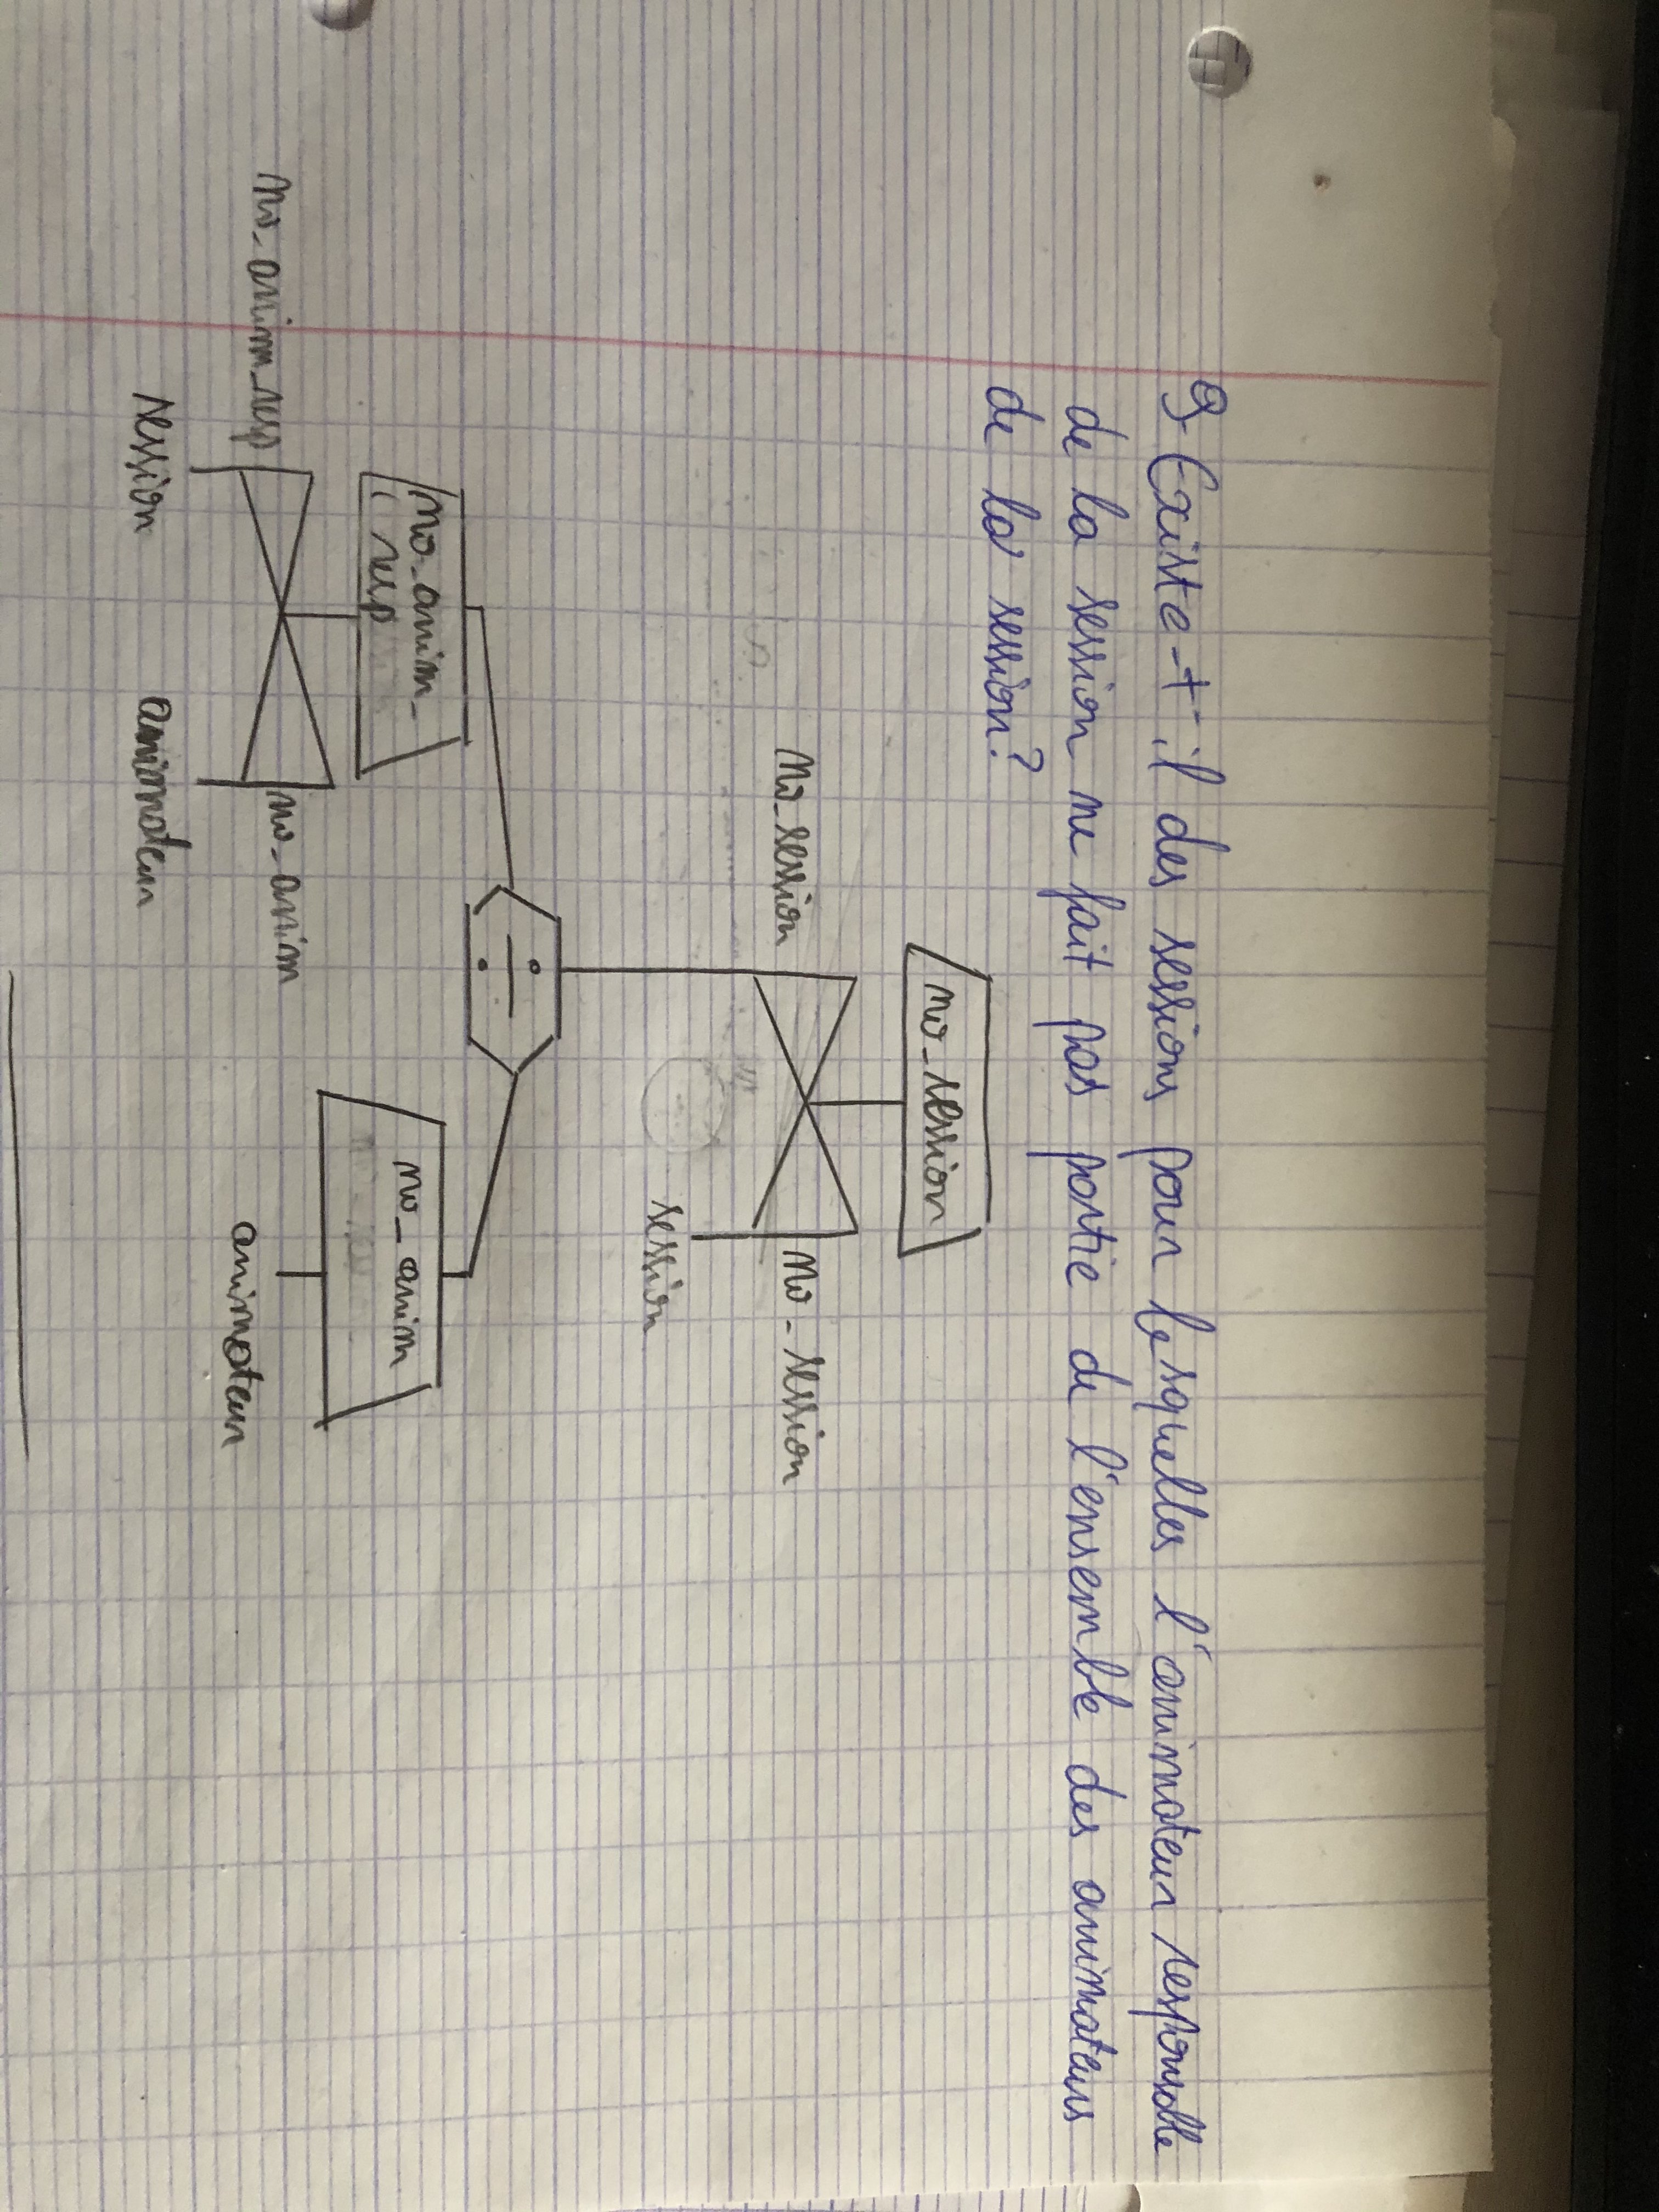 9- Existe-t-il des sessions pour lesquelles l'animateur responsable
de la session ne fait pas partie de l'ensemble des animateurs
de la session?
no_session
no_session
no_session
session
÷
no_anim_
resp
no_anim
no_anim_resp
no_anim
animateur
session
animateur